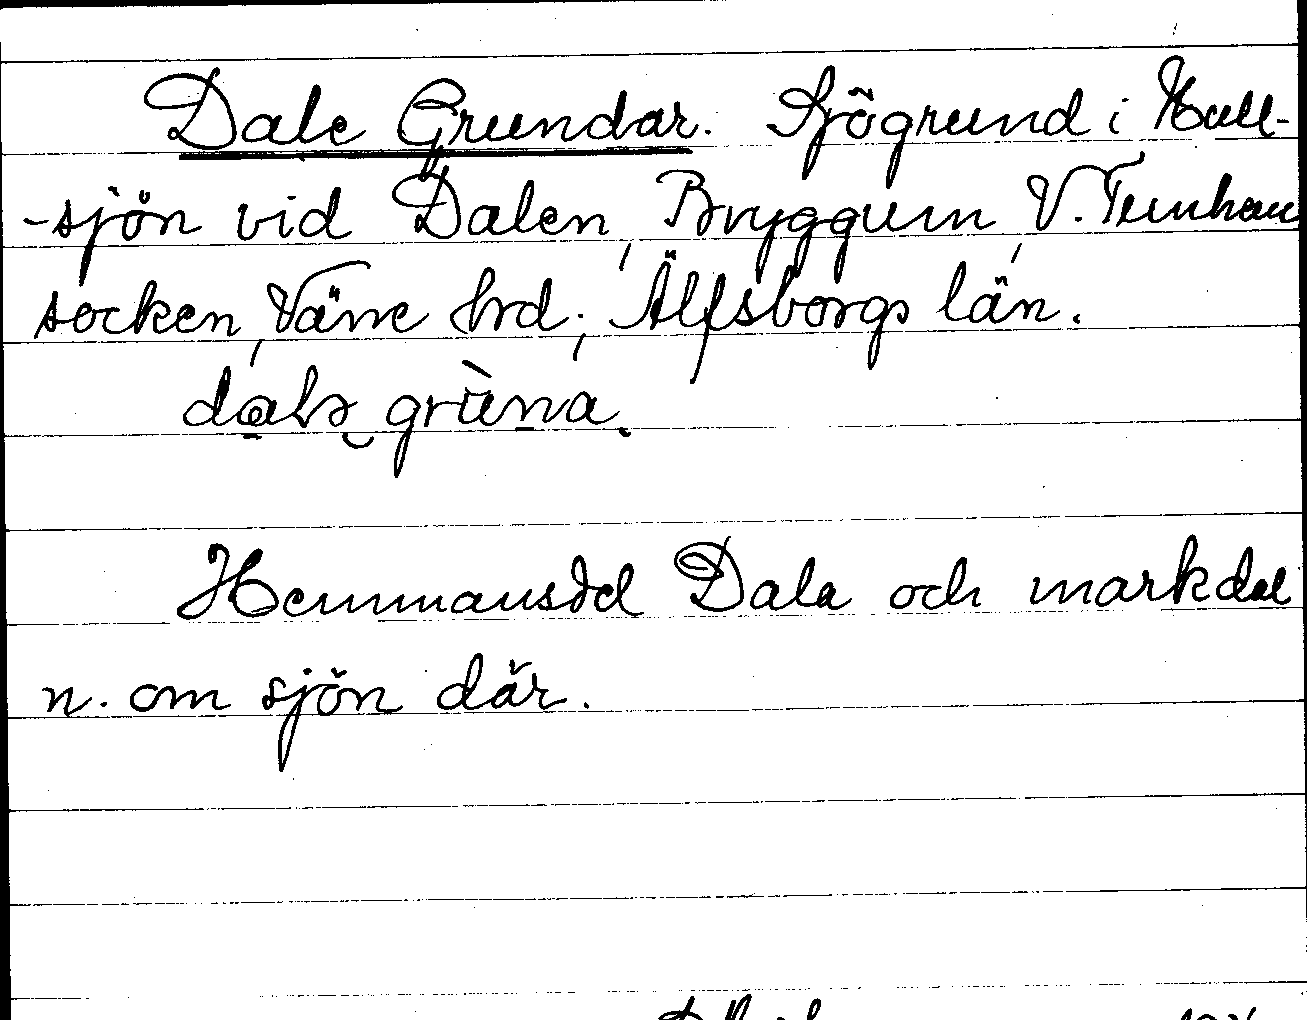 Dale Grundar. Sjögrund i Hull-
-sjön vid Dalen, Bryggum, V. Tunhem
socken, Väne hrd, Älfsborgs län.
Hemmansdel Dala och markdel
n. om sjön där.